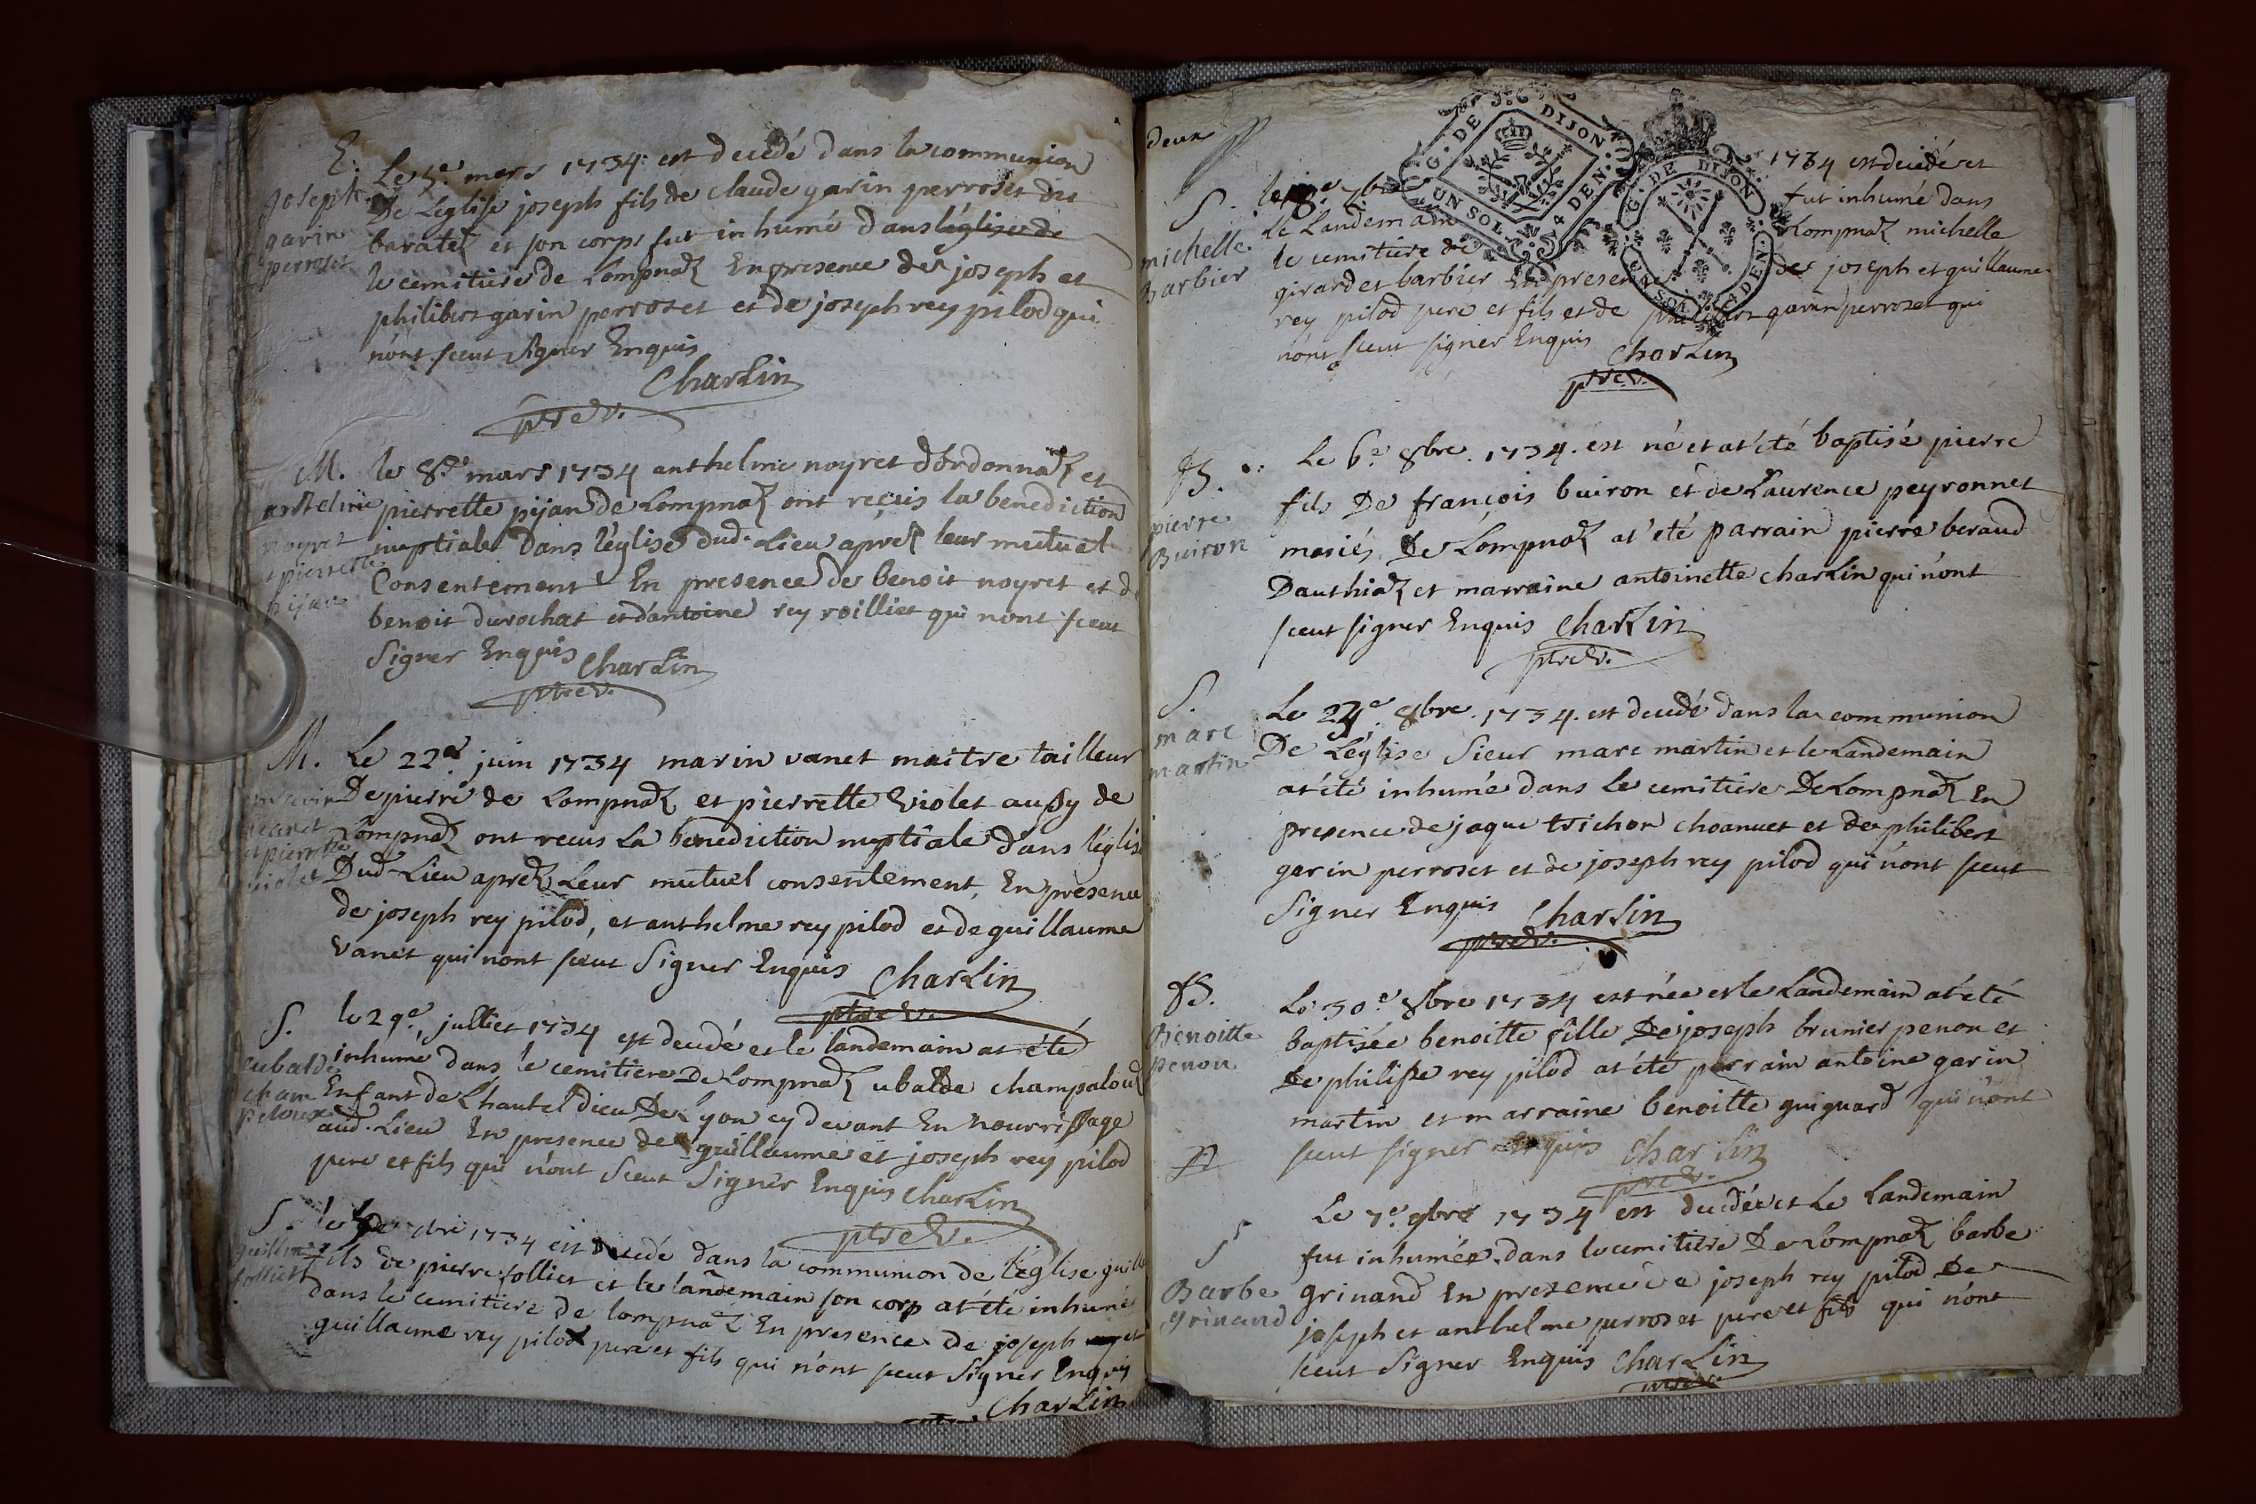 E.
joseph
garin
perroset
mars 1734 est decédé dans la communion
De Leglise joseph fils de claude garin perroset dit
baratez et son corps fut inhumé dans léglise de
le cemitiere de Lompnaz En presence de joseph et
philibert garin perroset et de joseph rey pilod qui
n'ont sceut signer Enquis
Charlin
ptre v.
M.
anthelme
noyret
et pierrette
pijan
le 8e mars 1734 anthelme noyret d'ordonnaz et
pierrette pijan de Lompnaz ont reçuis la benediction
nuptiale Dans l'église dud. Lieu aprez leur mutuel
Consentement En presence de benoit noyret et d
benoit durochat et d'antoine rey roilliet qui nont sceut
Signer Enquis Charlin
ptre v.
M.
marin
vanet
et pierrette
violet
Le 22e juin 1734 marin vanet maitre tailleur
De pierre de Lompnaz et pierrette Violet aussy de
Lompnaz ont recus La benediction nuptiale dans l'églis
Dud. Lieu aprez Leur mutuel consentement, En presence
de joseph rey pilod, et anthelme rey pilod et de guillaume
Vanet qui nont sceut Signer Enquis Charlin
ptre v.
S.
ubalde
cham
peloux
le 29e julliet 1734 est decedé et le landemain at été
inhumé dans le cemitiere De Lompnaz ubalde champalouz
Enfant de L'hautel dieu De Lyon cy devant En nourrissage
aud. Lieu En presence de guillaume et joseph rey pilod
pere et fils qui n'ont Sceut Signer Enquis Charlin
ptre v.
S.
guillme
folliet
1734 est decedé dans la communion de l'église guill
fils de pierre folliet et le landemain son corp at été inhumé
dans le cemitiere de lompnaz En presence de joseph et
guillaume rey pilod pere et fils qui n'ont sceut Signer Enquis
Charlin
deux
S.
michelle
Barbier
7bre 1734 est decidé et
le Landemain fut inhumé dans
le cemitiere de Lompnaz michelle
girardet barbier En presence de joseph et guillaume
rey pilod pere et fils et de philibert garin perroset qui
n'ont sceut signer Enquis Charlin
ptre v.
G. DE DIJON
UN SOL 4 DEN.
G. DE DIJON
B.
pierre
Buiron
Le 6e 8bre. 1734. est né et at été baptisé pierre
fils De françois buiron et de Laurence peyronnet
mariés De Lompnaz at été parrain pierre beraud
Dauthiaz et marraine antoinette charlin qui n'ont
sceut signer Enquis Charlin
ptre v.
S.
marc
martin
Le 8bre. 1734. est decedé dans la communion
De Léglise Sieur marc martin et le Landemain
at été inhumé dans Le cemitiere De Lompnaz En
presence de jaque trichon choanuet et de philibert
garin perroset et de joseph rey pilod qui n'ont sceut
Signer Enquis Charlin
ptre v.
B.
Benoitte
penon
Le 30e 8bre 1734 est née et le Landemain at été
baptisée benoitte fille De joseph brunier penon et
De philipe rey pilod at été parrain antoine garin
martin et marraine benoitte guiguard qui n'ont
sceut signer Enquis Charlin
ptre v.
S
Barbe
grinand
Le 7e 9bre 1734 est decidée et Le Landemain
fut inhumée dans le cemitiere De Lompnaz barbe
grinand En presence de joseph rey pilod De
joseph et anthelme perroset pere et fils qui n'ont
sceut Signer Enquis Charlin
ptre v.